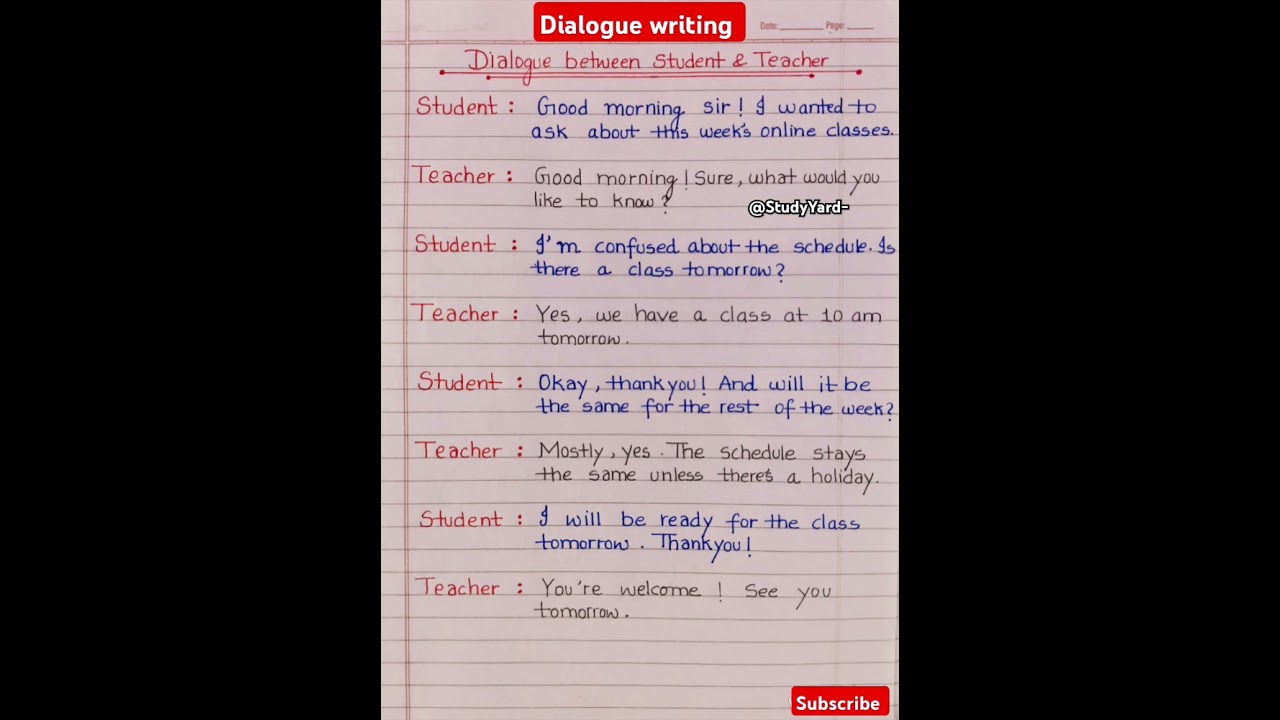 Dialogue writing
Date: ________ Page: _____
Dialogue between Student & Teacher
Student : Good morning sir! I wanted to
ask about this week's online classes.
Teacher : Good morning! Sure, what would you
like to know?
@StudyYard-
Student : I'm confused about the schedule. Is
there a class tomorrow?
Teacher : Yes, we have a class at 10 am
tomorrow.
Student : Okay, thankyou! And will it be
the same for the rest of the week?
Teacher : Mostly, yes. The schedule stays
the same unless there's a holiday.
Student : I will be ready for the class
tomorrow. Thankyou!
Teacher : You're welcome! See you
tomorrow.
Subscribe